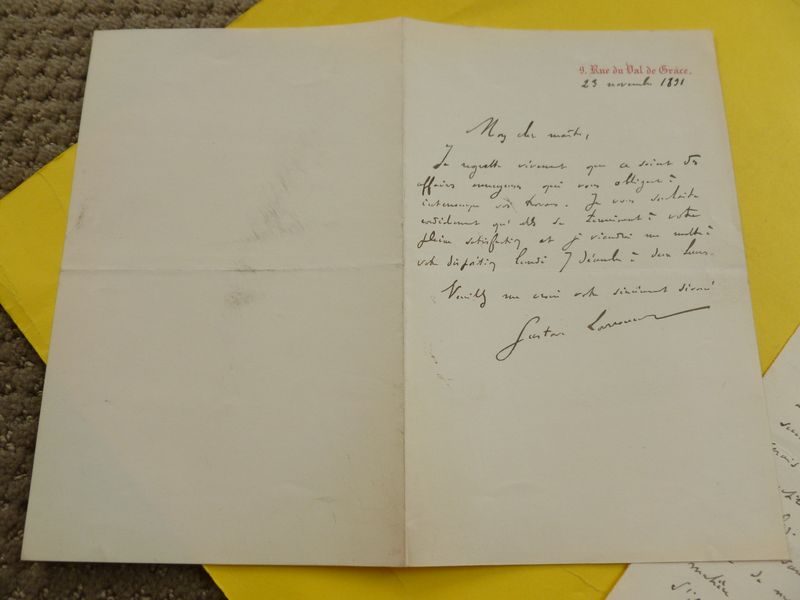 9, Rue du Val de Grâce.
23 novembre 1891
Mon cher maître,
Je regrette vivement que ce soient des
affaires ennuyeuses qui vous obligent à
interrompre vos travaux. Je vous souhaite
cordialement qu'elles se terminent à votre
pleine satisfaction et je viendrai me mettre à
votre disposition lundi 7 décembre à deux heures.
Veuillez me croire votre sincèrement dévoué
Gustave Larroumet